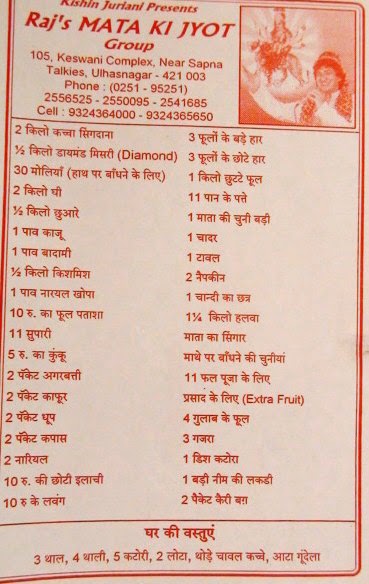 Kishin Juriani Presents
Raj's MATA KI JYOT
Group
105, Keswani Complex, Near Sapna
Talkies, Ulhasnagar - 421 003
Phone : (0251 - 95251)
2556525 - 2550095 - 2541685
Cell : 9324364000 - 9324365650
2 किलो कच्चा सिगदाना
½ किलो डायमंड मिसरी (Diamond)
30 मोलियाँ (हाथ पर बाँधने के लिए)
2 किलो घी
½ किलो छुआरे
1 पाव काजू
1 पाव बादामी
½ किलो किशमिश
1 पाव नारयल खोपा
10 रु. का फूल पताशा
11 सुपारी
5 रु. का कुंकू
2 पॅकेट अगरबत्ती
2 पॅकेट काफूर
2 पॅकेट धूप
2 पॅकेट कपास
2 नारियल
10 रु. की छोटी इलाची
10 रु के लवंग
3 फूलों के बड़े हार
3 फूलों के छोटे हार
1 किलो छुटटे फूल
11 पान के पत्ते
1 माता की चुनी बड़ी
1 चादर
1 टावल
2 नैपकीन
1 चान्दी का छत्र
1¼ किलो हलवा
माता का सिंगार
माथे पर बाँधने की चुनीयां
11 फल पूजा के लिए
प्रसाद के लिए (Extra Fruit)
4 गुलाब के फूल
3 गजरा
1 डिश कटोरा
1 बड़ी नीम की लकडी
2 पैकेट कैरी बग़
घर की वस्तुएं
3 थाल, 4 थाली, 5 कटोरी, 2 लोटा, थोड़े चावल कच्चे, आटा गूंदेला